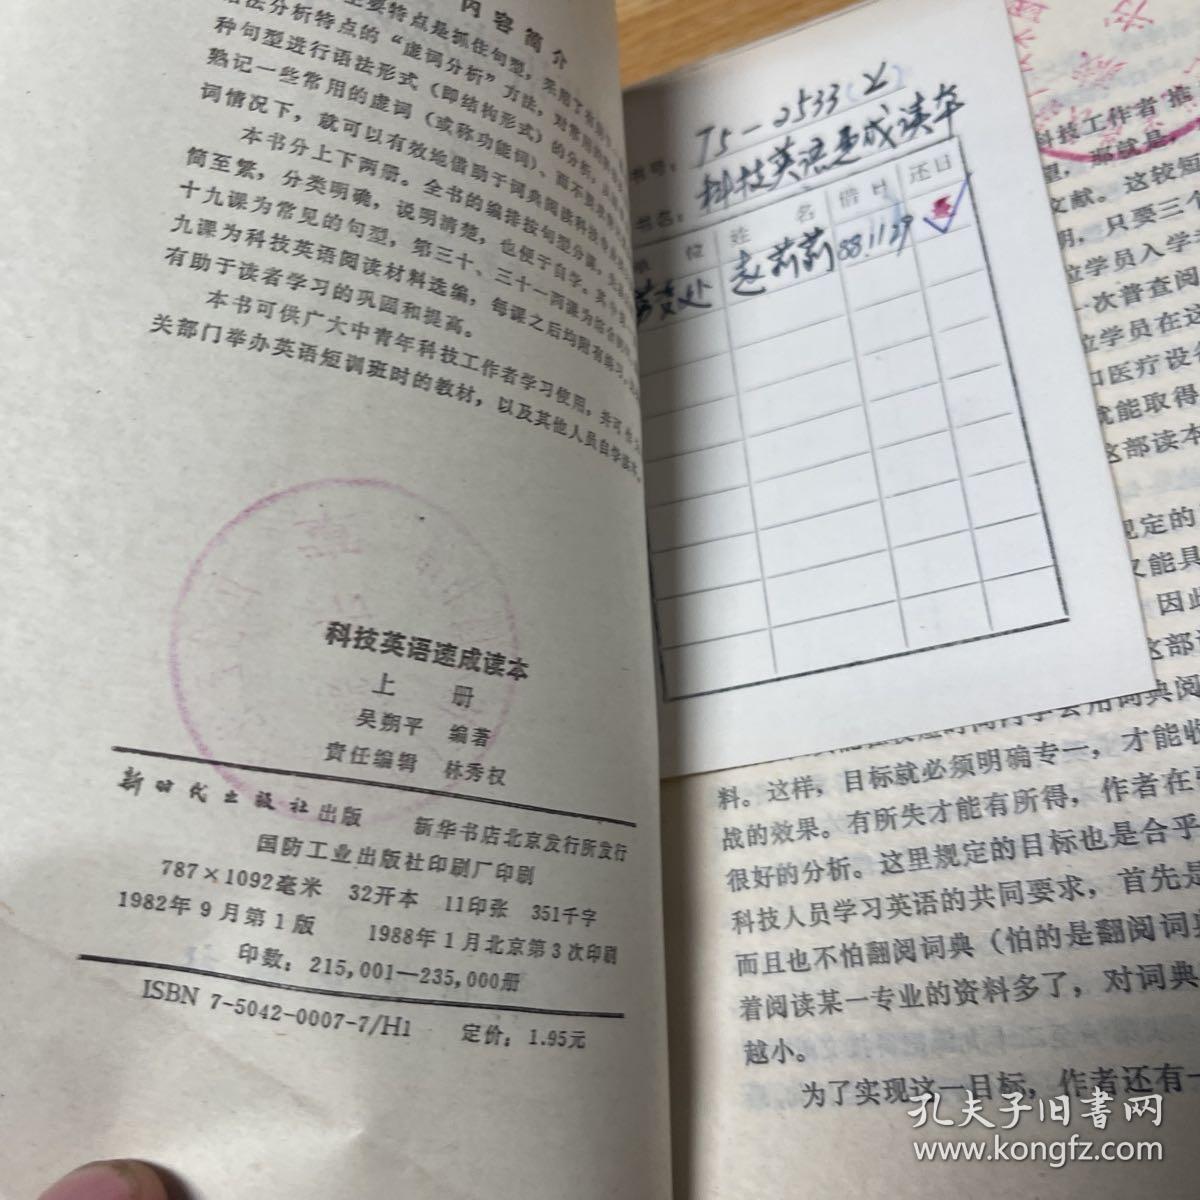 内容简介
主要特点是抓住句型，采用了
语法分析特点的“虚词分析”方法，对常用的
种句型进行语法形式（即结构形式）的分析，从
熟记一些常用的虚词（或称功能词）、而不要
词情况下，就可以有效地借助于词典阅读科技
本书分上下两册。全书的编排按句型分课，
简至繁，分类明确，说明清楚，也便于自学。其中
十九课为常见的句型，第三十、三十一两课为
九课为科技英语阅读材料选编，每课之后均附有练习，
有助于读者学习的巩固和提高。
本书可供广大中青年科技工作者学习使用，并可作
关部门举办英语短训班时的教材，以及其他人员自学读本。
科技英语速成读本
上 册
吴朔平 编著
责任编辑 林秀权
新时代出版社出版 新华书店北京发行所发行
国防工业出版社印刷厂印刷
787×1092毫米 32开本 11印张 351千字
1982年9月第1版 1988年1月北京第3次印刷
印数：215,001—235,000册
ISBN 7-5042-0007-7/H1 定价：1.95元
书号： T5-2533(上)
书名：科技英语速成读本
单位 姓名 借日 还日
赵莉莉 88.11.29
科技工作者推
望，那就是，
文献。这较短
明，只要三个
位学员入学
一次普查阅
位学员在这
和医疗设备
就能取得
这部读本
规定的
又能具
因此
这部
学会用词典阅
料。这样，目标就必须明确专一，才能收
战的效果。有所失才能有所得，作者在
很好的分析。这里规定的目标也是合乎
科技人员学习英语的共同要求，首先是
而且也不怕翻阅词典（怕的是翻阅词典
着阅读某一专业的资料多了，对词典
越小。
为了实现这一目标，作者还有一
孔夫子旧书网
www.kongfz.com